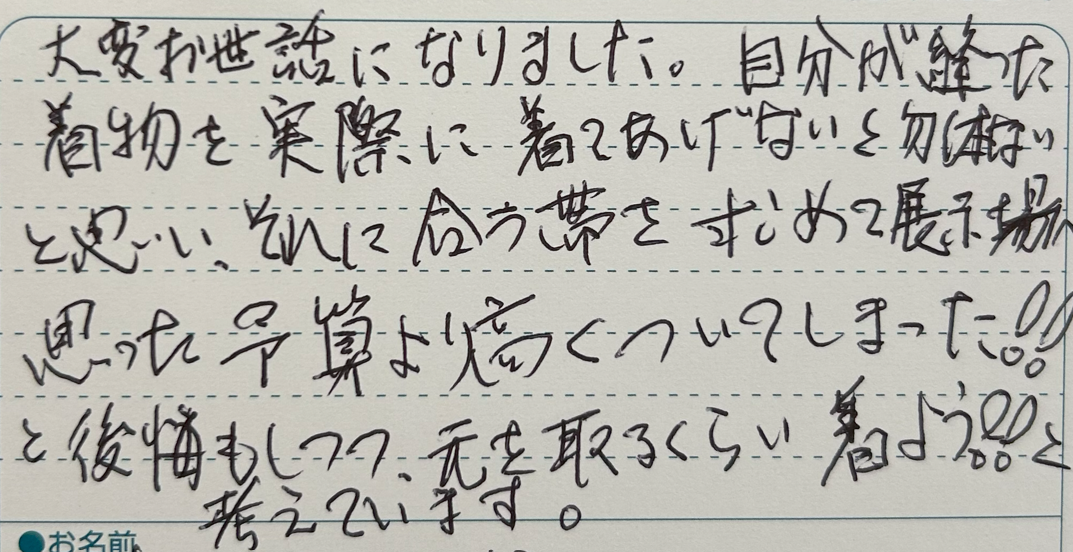 大変お世話になりました。自分が縫った
着物を実際に着てあげないと勿体ない
と思い、それに合う帯を求めて展示場へ
思った予算より高くついてしまった!!
と後悔もしつつ、元を取るくらい着よう!!と
考えています。
●お名前